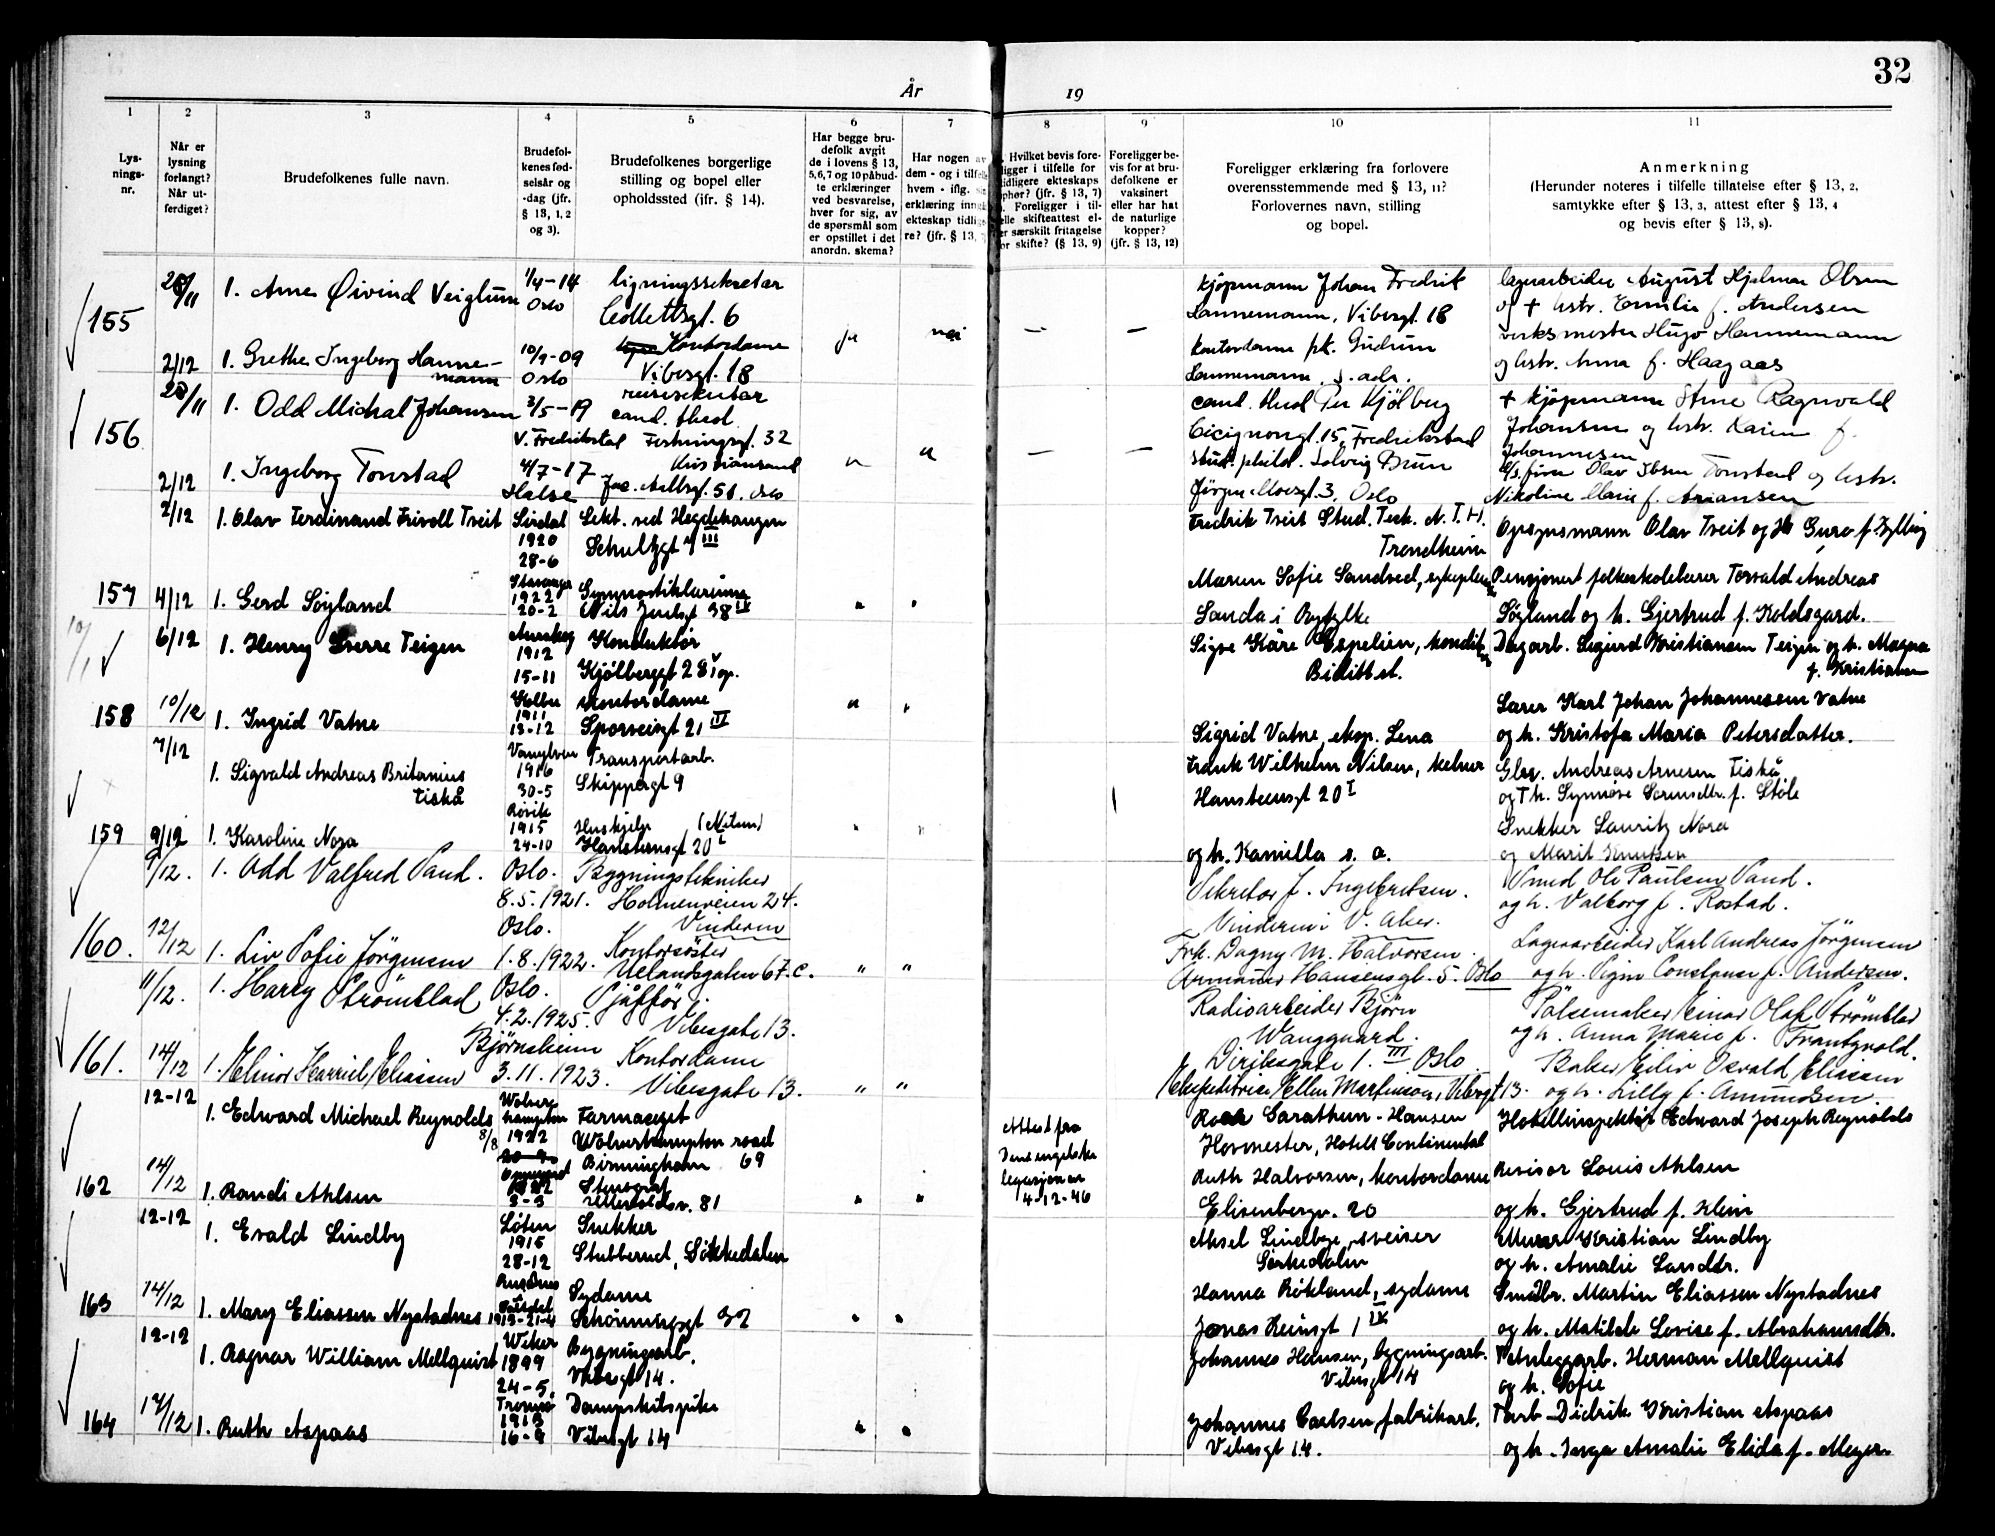 32
År 19
1 2 3 4 5 6 7 8 9 10 11
Lys-
nings-
nr.
Når er
lysning
forlangt?
Når ut-
ferdiget?
Brudefolkenes fulle navn.
Brudefol-
kenes fød-
selsår og
-dag (jfr.
§ 13, 1, 2
og 3).
Brudefolkenes borgerlige
stilling og bopel eller
opholdssted (jfr. § 14).
Har begge bru-
defolk avgit
de i lovens § 13,
5, 6, 7 og 10 påbud-
te erklæringer
ved besvarelse,
hver for sig, av
de spørsmål som
er opstillet i det
anordn. skema?
Har nogen av
dem - og i tilfelle
hvem - iflg.
erklæring inng
ekteskap tidlige
re? (jfr. § 13,
Hvilket bevis fore-
ligger i tilfelle for
tidligere ekteskaps
ophør? (jfr. § 13, 7)
Foreligger i til-
elle skifteattest el-
er særskilt fritagelse
or skifte? (§ 13, 9)
Foreligger be-
vis for at bru-
defolkene er
vaksinert
eller har hat
de naturlige
kopper?
(jfr. § 13, 12)
Foreligger erklæring fra forlovere
overensstemmende med § 13, 11?
Forlovernes navn, stilling
og bopel.
Anmerkning
(Herunder noteres i tilfelle tillatelse efter § 13, 2,
samtykke efter § 13, 3, attest efter § 13, 4
og bevis efter § 13, 8).
155
1. Arne Øivind Veiglum
1/4-14
Oslo
ligningssekretær
Collettsgt. 6
ja nei — —
kjøpmann Johan Fredrik
Hannemann, Vibesgt. 18
lagerarbeider August Hjalmar Olsen
og + hstr. Emilie f. Andersen
2/12
1. Grethe Ingeborg Hanne-
mann
10/9-09
Oslo
Kontordame
Vibesgt. 18
kontordame frk. Gudrun
Hannemann, s. adr.
verksmester Hugo Hannemann
og hstr. Anna f. Haagaas
156
1. Odd Michal Johansen
3/5-19
V. Fredrikstad
reisesekretær
cand. theol.
Festningsgt. 32
Kristiansand
cand. theol Per Kjølberg
Cicignongt. 15, Fredrikstad
+ kjøpmann Arne Ragnvald
Johansen og hstr. Karen f.
Johannesen
2/12
1. Ingeborg Tonstad
4/7-17
Halse
Jac. Aallsgt. 51, Oslo
stud. philol. Solveig Bruun
Jørgen Moesgt. 3, Oslo
Olav Ibsen Tonstad og hstr.
Nikoline Marie f. Ariansen
2/12
1. Olav Ferdinand Trivoll Treit
Sirdal
1920
28-6
Sekt. ved Hegdehaugen
Schultzgt 7 III
Fredrik Treit Stud. Tech. N.T.H.
Trondheim
Opsynsmann Olav Treit og H Guro f.
157
4/12
1. Gerd Søyland
Stavanger
1922
20-2
Gymnastiklærerinne
Nils Juelsgt 38 IV
Maren Sofie Sandved,
Sanda i Ryfylke
Pensjonert folkeskolelærer Torvald Andreas
Søyland og h. Gjertrud f. Koldsgard.
6/12
1. Henry Sverre Teigen
Aurskog
1912
15-11
Konduktør
Kjølberggt 28 V op.
Sigve Kåre Espelien,
Dagarb. Sigurd Kristiansen Teigen og h. Magna
f. Kristiansen
158
10/12
1. Ingrid Vatne
1911
13-12
Kontordame
Sporveisgt 21 III
Sigrid Vatne, eksp. Lena
Karl Johan Johannessen Vatne
og h. Kristofa Maria Petersdatter.
7/12
1. Sigvald Andreas Britanius
Eiskå
Vanylven
1916
30-5
Transportarb.
Skippergt 9
Frank Wilhelm Nilsen, kelner
Hansteensgt 20 I
Andreas Arnesen Eiskå
159
9/12
1. Karoline Nora
1915
24-10
Hushjelp
Hansteensgt 20 I
og h. Kamilla s. a.
Snekker Lauritz Nora
og Marit Knutsen
9/12.
1. Odd Valfred Sand.
Oslo.
8.5.1921.
Bygningstekniker
Holmenveien 24.
Vinderen
Sekretær f. Ingebretsen.
Vinderen i V. Aker.
Smed Ole Paulsen Sand.
og h. Valborg f. Rostad.
160.
12/12
1. Liv Sofie Jørgensen
Oslo.
1.8.1922.
Kontorsøster
Uelandsgaten 67.c.
Frk. Dagny M. Halvorsen.
Armauer Hansensgt. 5. Oslo
Lagerarbeider Karl Andreas Jørgensen
og h. Signe Constanse f. Andersen.
11/12.
1. Harry Strømblad
Oslo.
4.2.1925.
Sjåffør.
Vibesgate 13.
Radioarbeider Bjørn
Wanggaard.
Diriksgate 1. III Oslo
Pølsemaker Einar Olaf Strømblad
og h. Anna Marie f.
161.
14/12
1. Elinor Harriet Eliassen
Bjørnsheim
3.11.1923.
Kontordame
Vibesgate 13.
Ekspeditrise Ellen Martinson, Vibesgt 13.
Baker Eiliv Osvald Eliassen
og h. Lilly f. Amundsen.
12-12
1. Edward Michael Reynolds
8/8
Wolver-
hampton
1922
Farmaceyt
Wolverhampton road
Birmingham 69
Attest fra
Den engelske
legasjon av
4-12-46
Sarathun-Hansen
Hovmester, Hotell Continental
Hotellinspektør Edward Joseph Reynolds
162
14/12
1. Randi Ahlsen
1922
3-3
Stenograf
Ullevålsv. 81
Ruth Halvorsen, kontordame
Elisenbergv. 20
Revisor Louis Ahlsen
og h. Gjertrud f. Klein
12-12
1. Evald Lindby
Løten
1915
28-12
Snekker
Stubberud, Sørkedalen
Aksel Lindbye, sveiser
Sørkedalen
Murer Kristian Lindby
og h. Amalie Landdr.
163
14/12
1. Mary Eliassen Nystadnes
1912-21-4
Sydame
Schønninggt 32
Hanna Røkland, sydame
Jonas Reinsgt 1 IV
Småbr. Martin Eliassen Nystadnes
og h. Matilde Lovise f. Abrahamsdtr.
12-12
1. Ragnar William Mellquist
1899
24-5.
Bygningsarb.
Vibesgt 14.
Johannes Hansen, bygningsarb.
Vibesgt 14
Anleggarb. Herman Mellquist
og h. Sofie
164
14/12
1. Ruth Aspaas
Tromsø
1913
16-9
Dampskibspike
Vibesgt 14
Johannes Carlsen fabrikarb.
Vibesgt 14.
Didrik Kristian Aspaas
og h. Inga Amalie Elida f. Meyer